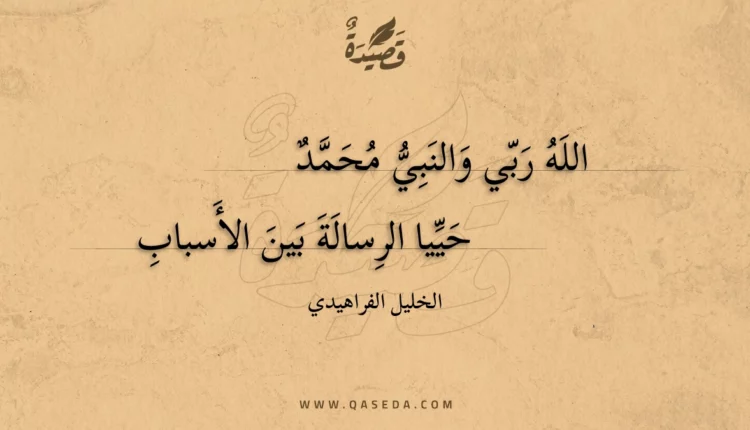 قَصِيْدَةٌ
اللَهُ رَبّي وَالنَبِيُّ مُحَمَّدٌ
حَيِّيا الرِسالَةَ بَينَ الأَسبابِ
الخليل الفراهيدي
WWW.QASEDA.COM